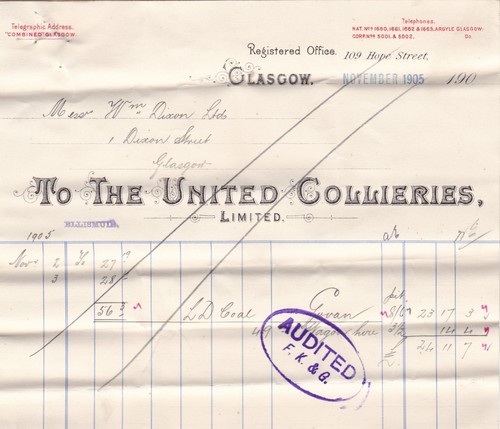 Telegraphic Address.
"COMBINED" GLASGOW.
Telephones.
NAT. Nos 1660, 1661, 1662 & 1663, ARGYLE GLASGOW
CORRN Nos 5001 & 5002. Do.
Registered Office. 109 Hope Street,
GLASGOW. NOVEMBER 1905 190
Messrs Wm Dixon Ltd
1 Dixon Street
Glasgow
TO THE UNITED COLLIERIES,
LIMITED.
1905
Novr 2 To 27
3 28
56 LD Coal Govan 8/5 23 17 3
49 Glasgow here 3/2 14 4
£ 24 11 7
AUDITED
F. K. & G.